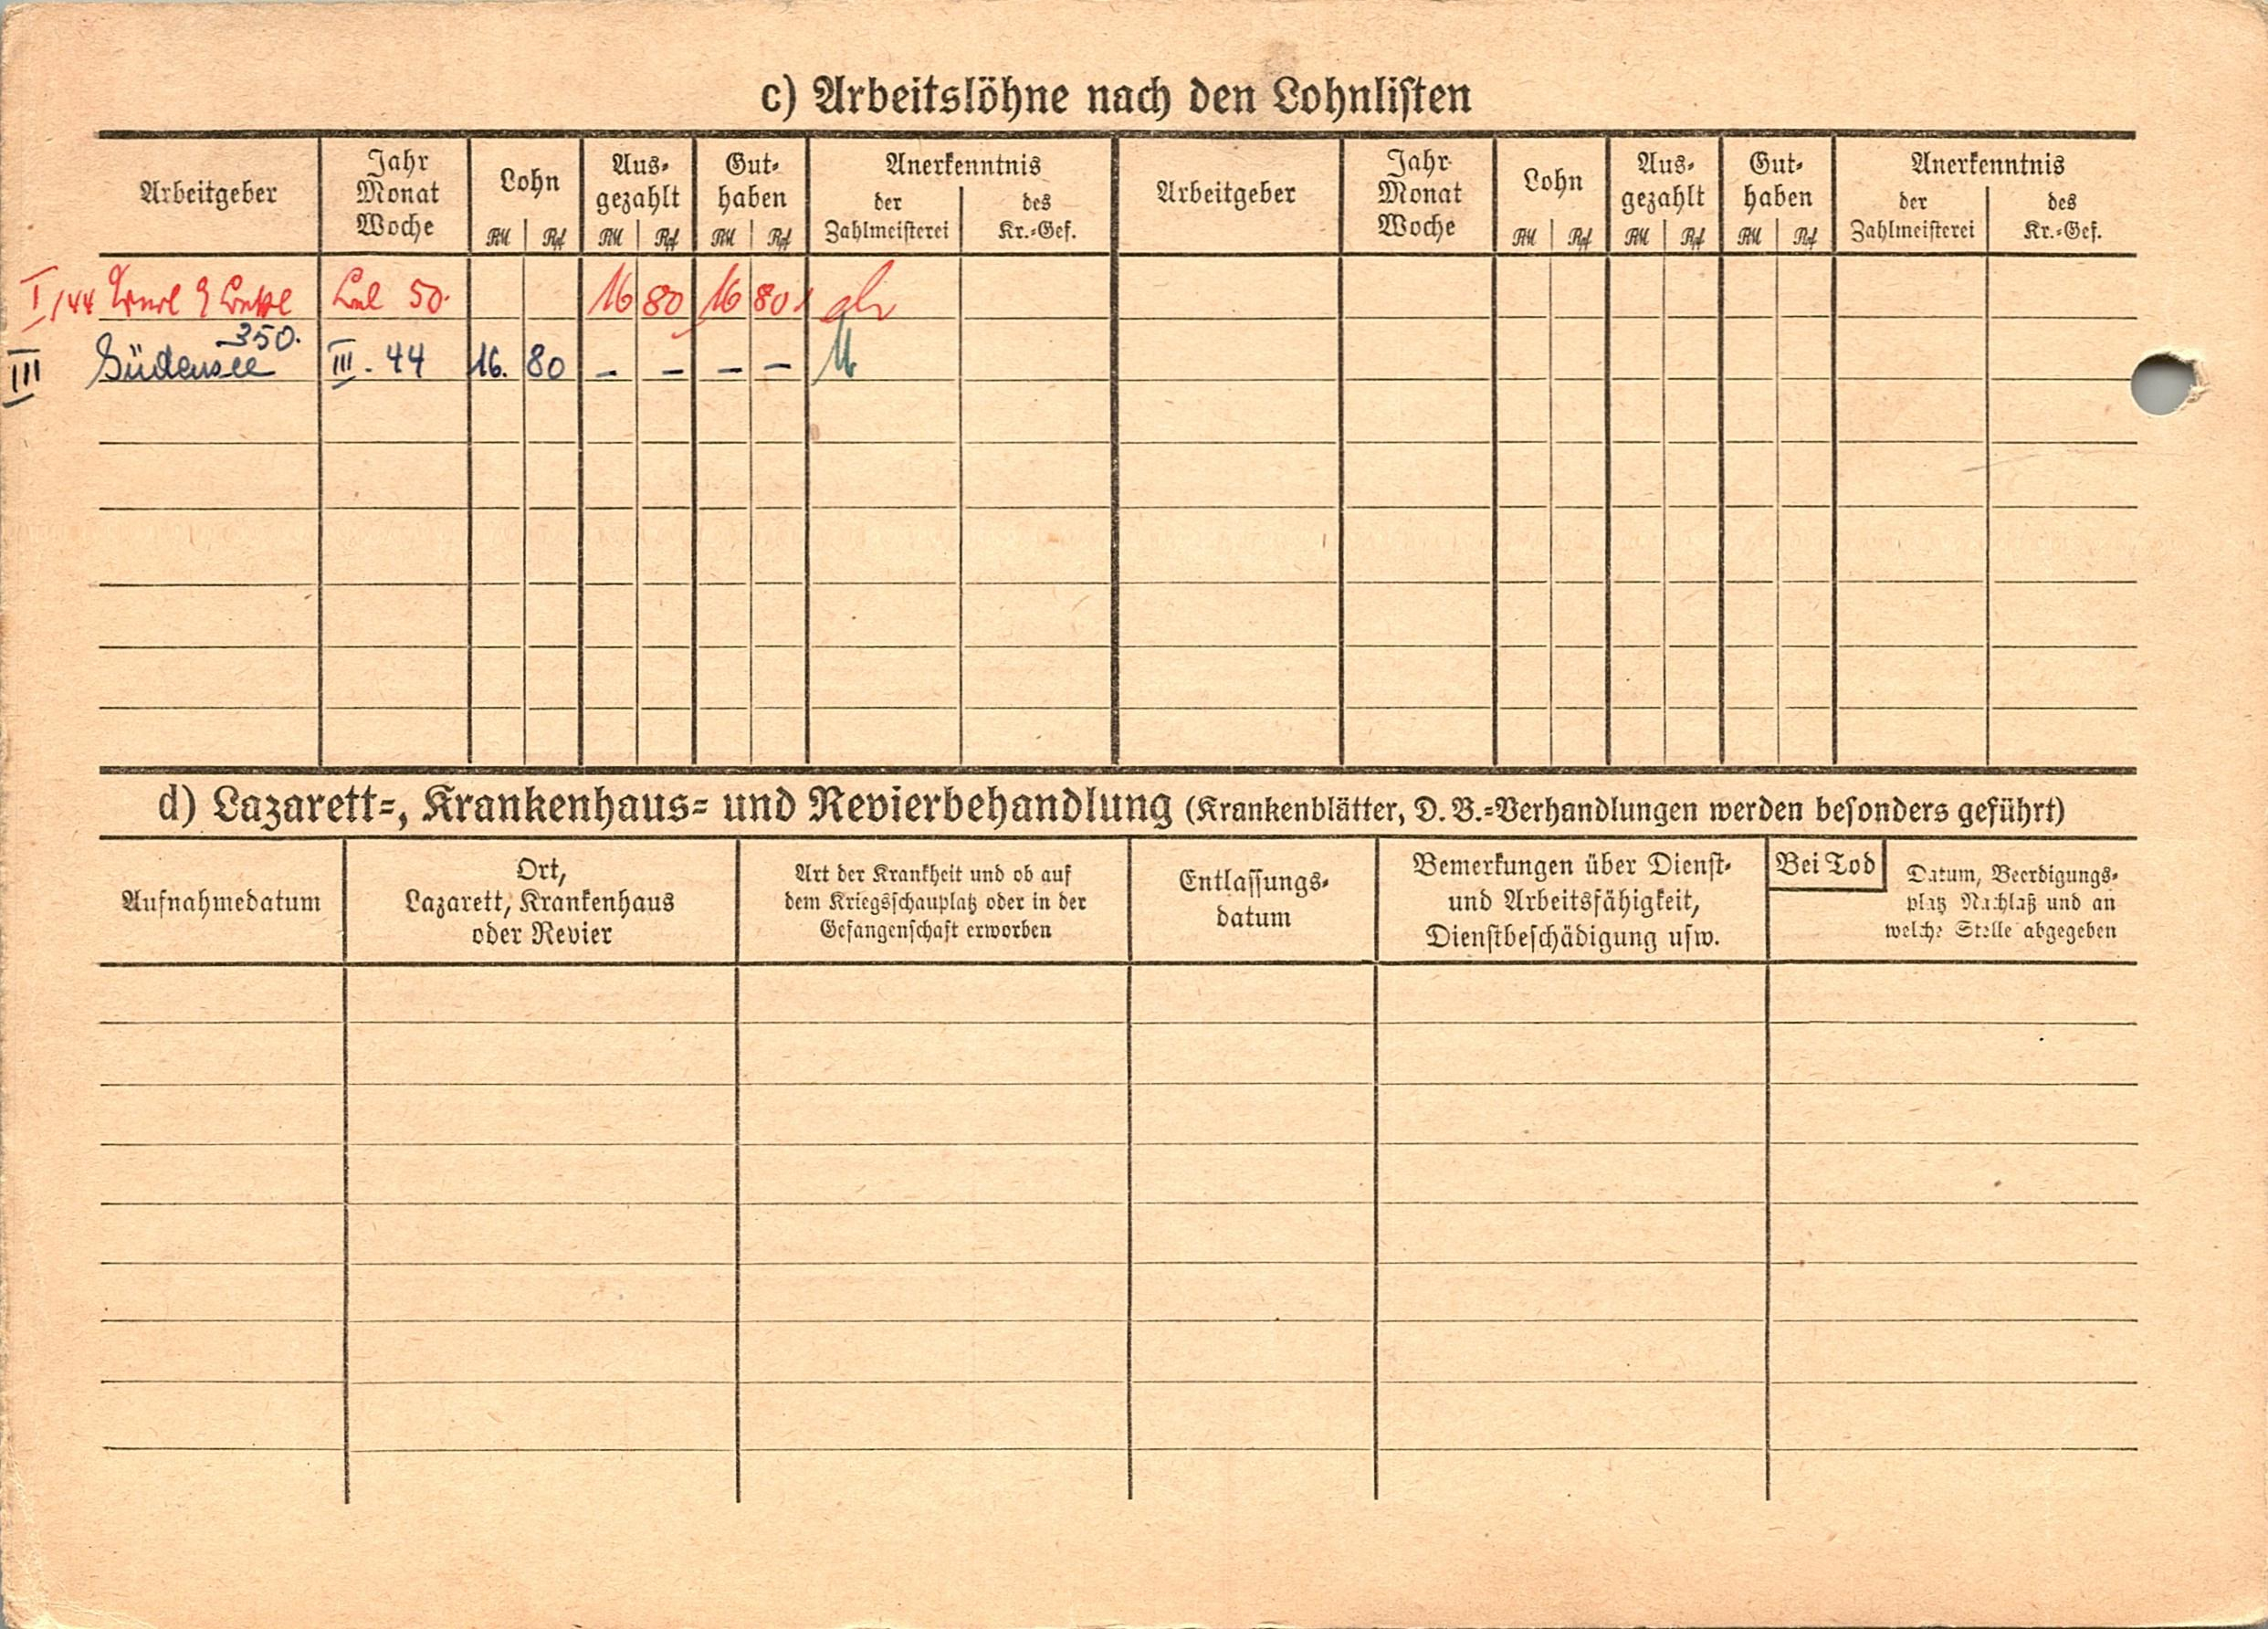 c) Arbeitslöhne nach den Lohnlisten
Arbeitgeber Jahr Monat Woche Lohn RM Rpf Aus-gezahlt RM Rpf Gut-haben RM Rpf Anerkenntnis der Zahlmeisterei des Kr.-Gef. Arbeitgeber Jahr Monat Woche Lohn RM Rpf Aus-gezahlt RM Rpf Gut-haben RM Rpf Anerkenntnis der Zahlmeisterei des Kr.-Gef.
I/44 50. 16 80 16 80
350.
III Südensee III. 44 16. 80 – – – –
d) Lazarett-, Krankenhaus- und Revierbehandlung (Krankenblätter, D. B.-Verhandlungen werden besonders geführt)
Aufnahmedatum
Ort,
Lazarett, Krankenhaus
oder Revier
Art der Krankheit und ob auf
dem Kriegsschauplatz oder in der
Gefangenschaft erworben
Entlassungs-
datum
Bemerkungen über Dienst-
und Arbeitsfähigkeit,
Dienstbeschädigung usw.
Bei Tod
Datum, Beerdigungs-
platz Nachlaß und an
welche Stelle abgegeben